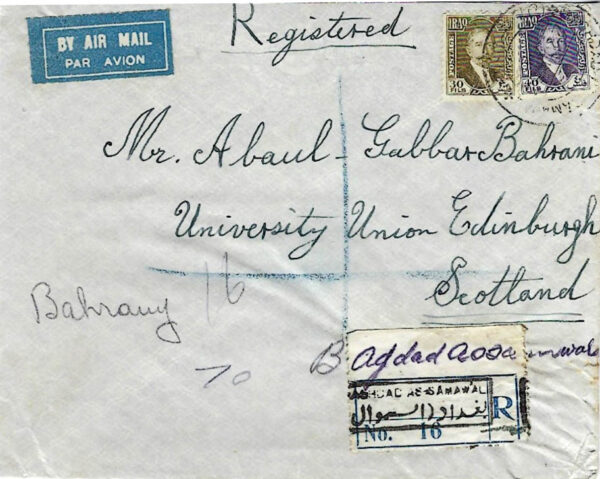 BY AIR MAIL
PAR AVION
Registered
IRAQ
POSTAGE
30
FILS
IRAQ
POSTAGE
40
FILS
Mr. Abaul-Gabbar Bahrani
University Union Edinburgh
Scotland
Bahrany 16
70
Bagdad
GHDAD AS-SAMAWAL
بغداد (السموال
R
No. 16